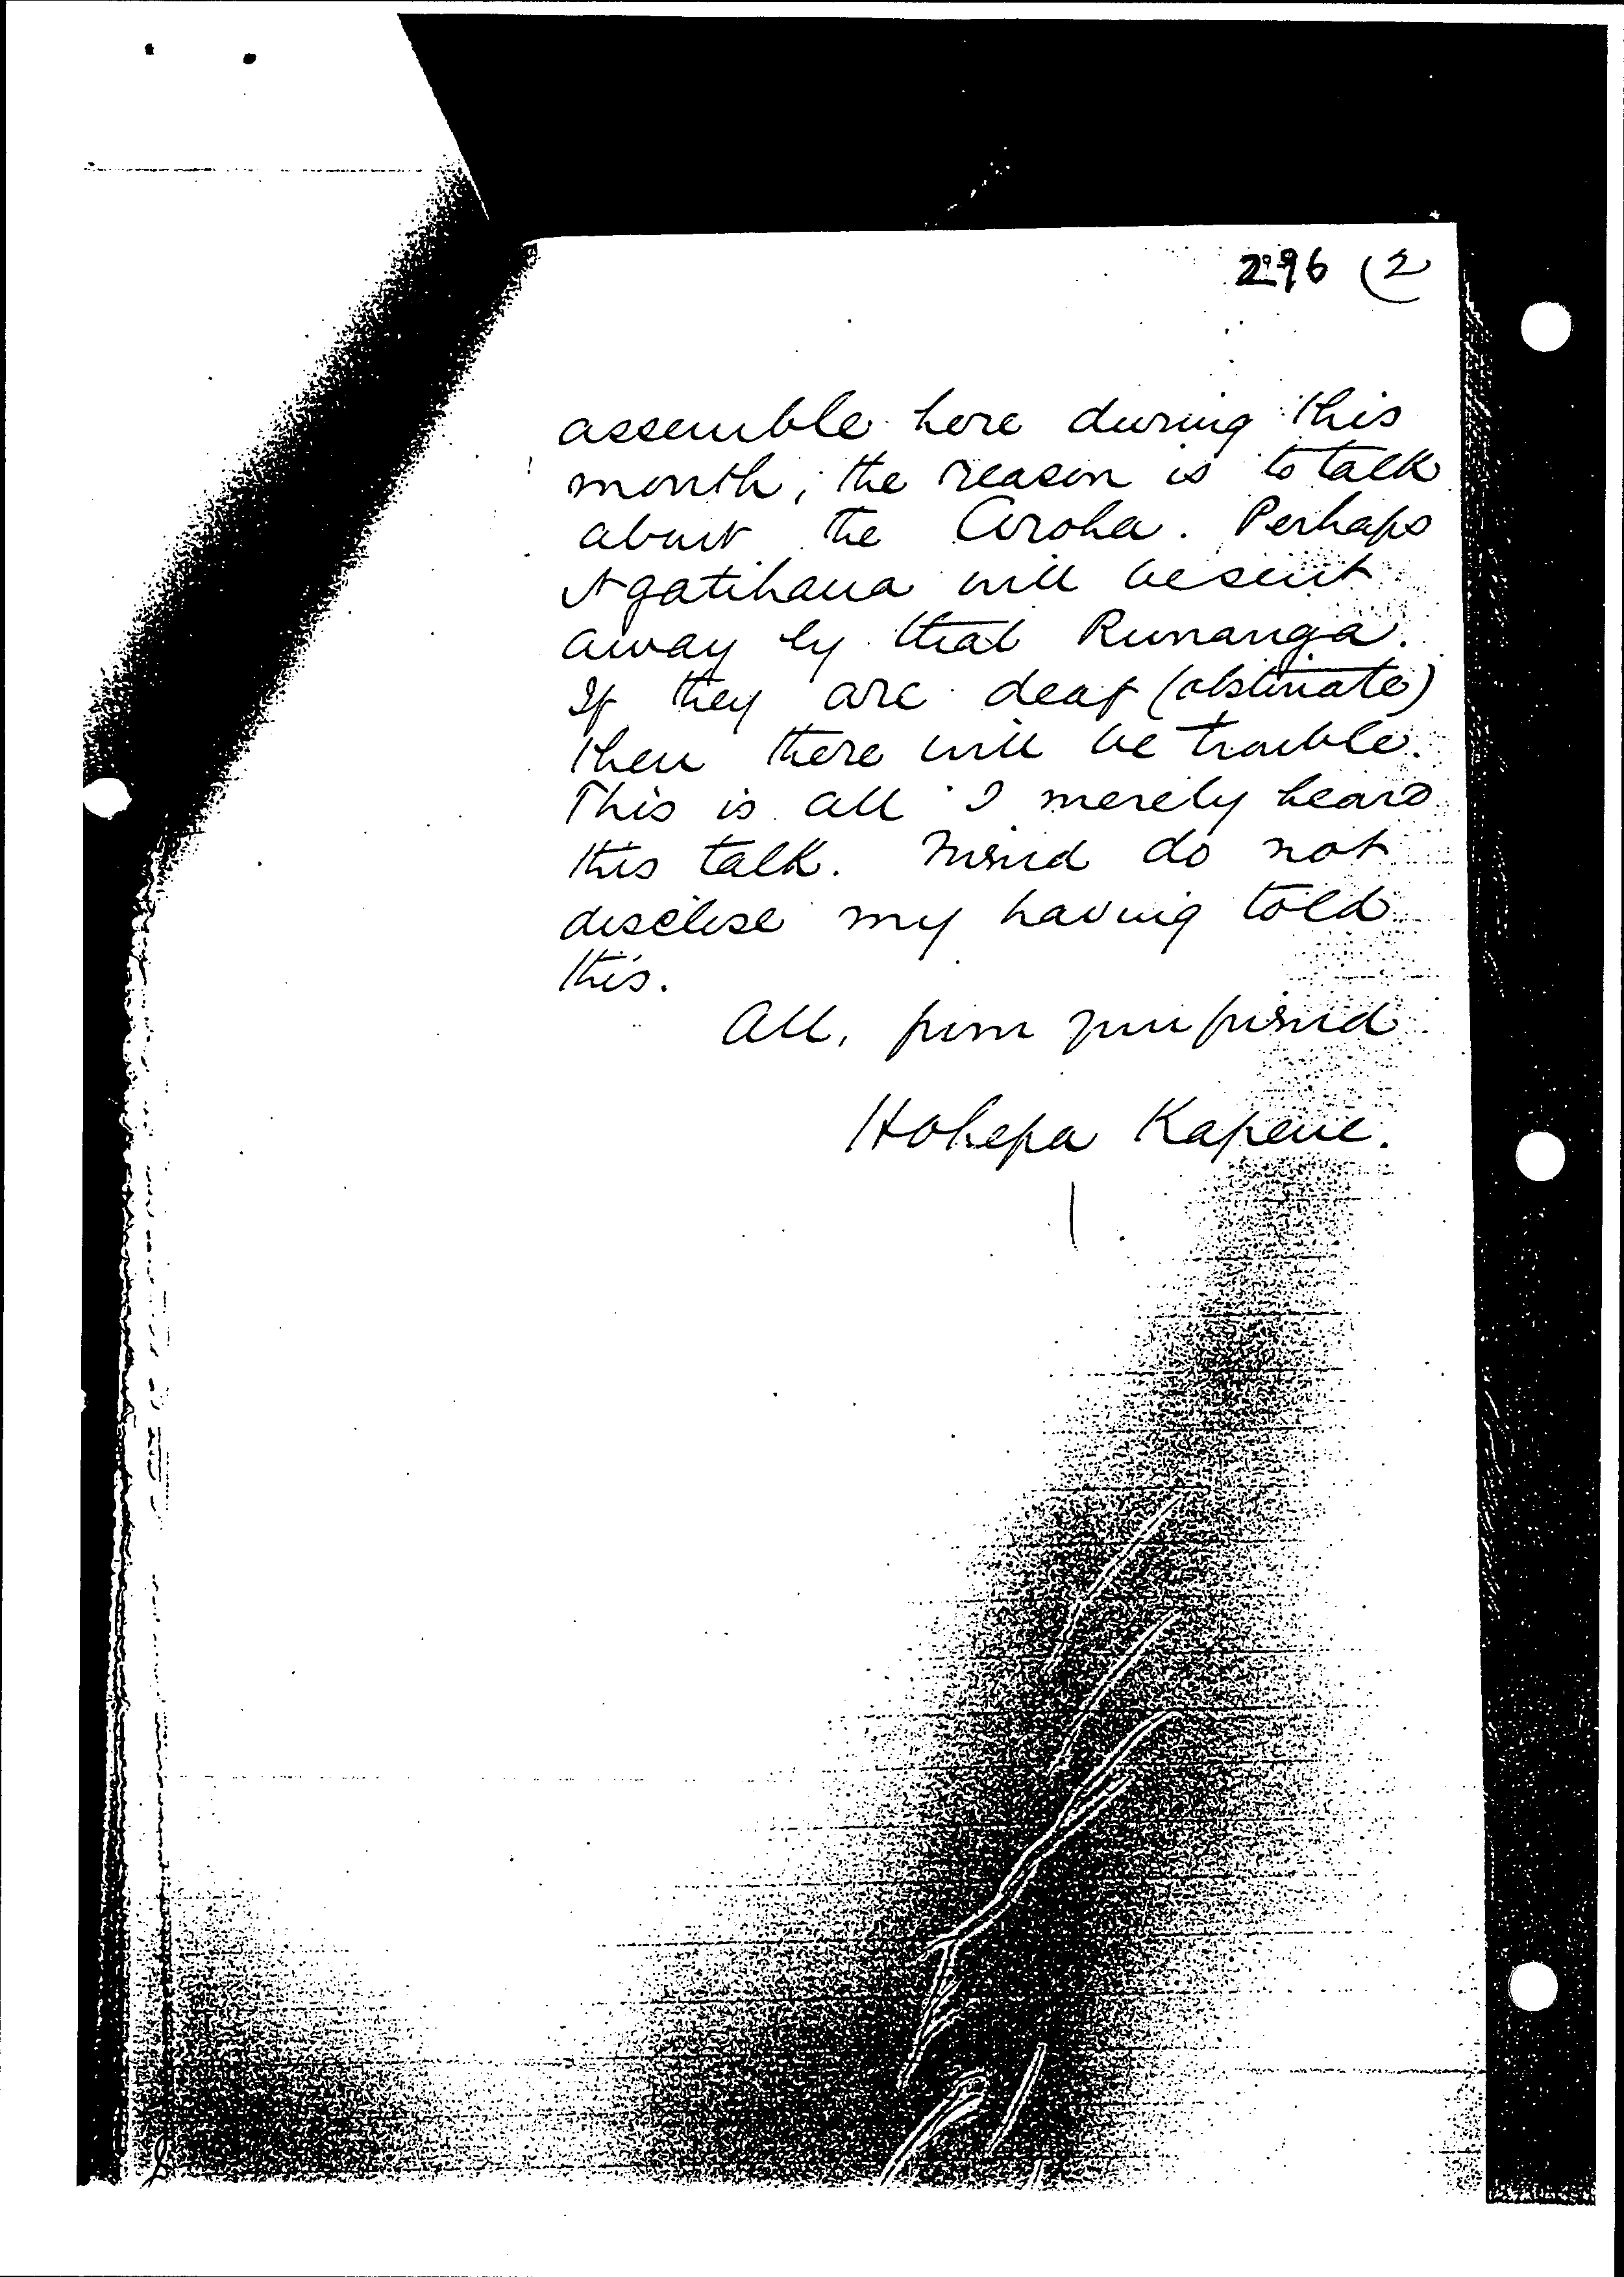 296 (2
assemble here during this
month; the reason is to talk
about the Aroha. Perhaps
Ngatihaua will be sent
away by that Runanga.
If they are deaf (obstinate)
then there will be trouble.
This is all I merely heard
this talk. Mind do not
disclose my having told
this.
All, from your friend
Hohepa Kapene.